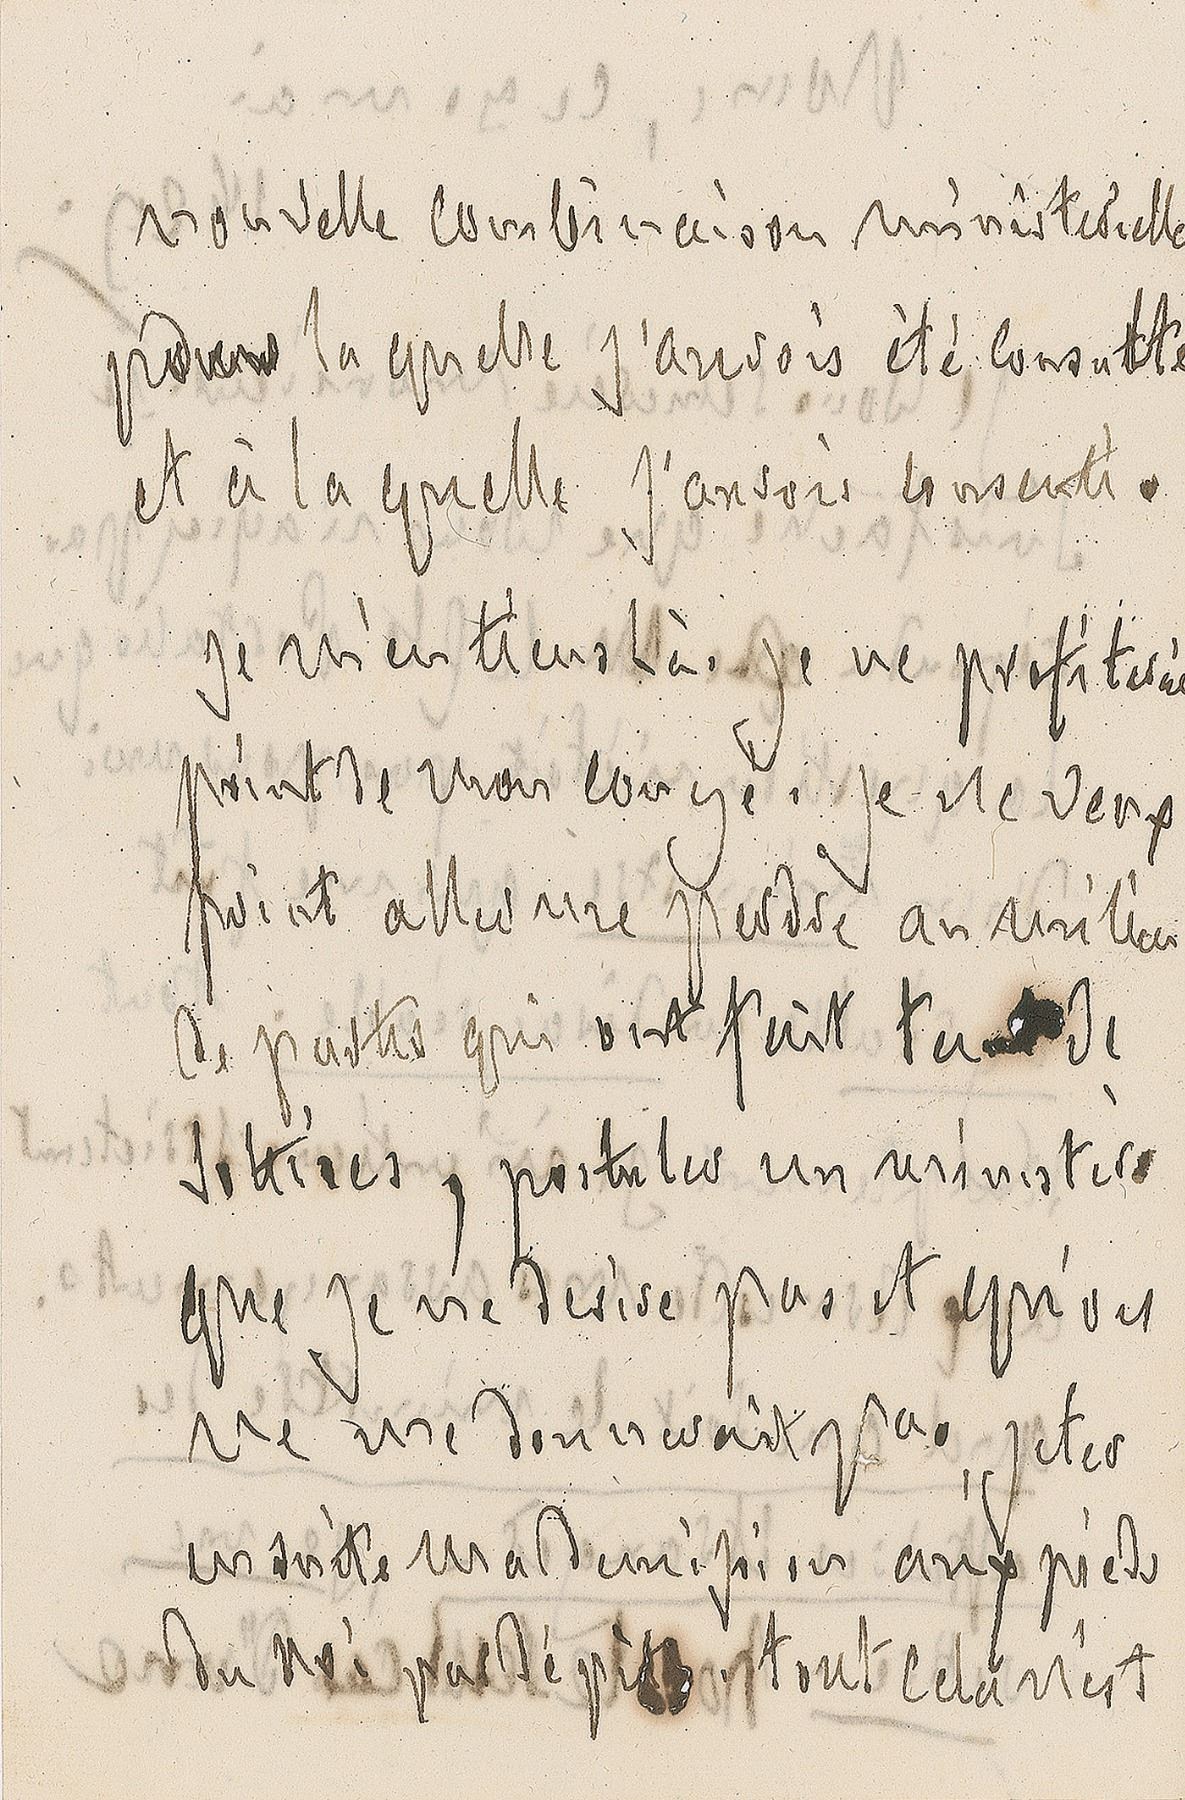 nouvelle combinaison ministérielle
pour la quelle j'aurois été consulté
et à la quelle j'aurois consenti.
je m'en tiens là. je ne profiterai
point de mon congé. je ne veux
point aller me perdre au milieu
de partis qui ont fait tant de
sottises, postuler un ministère
que je ne desire pas et qu'on
ne me donneroit pas, jeter
ensuite ma demission aux pieds
du Roi par dépit. tout cela n'est